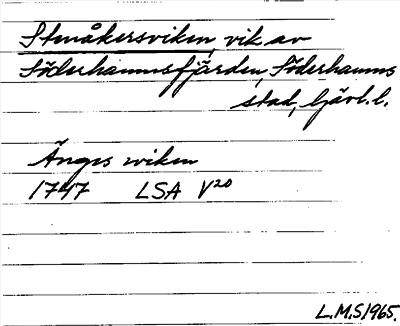 Stenåkersviken, vik av
Söderhamnsfjärden, Söderhamns
stad, Gävl. l.
Ängs wiken
1747 LSA V20
L.M.S. 1965.